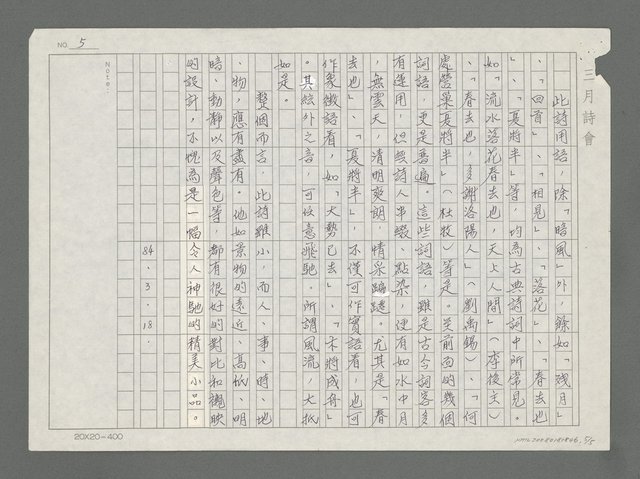 NO. 5
Note:
三月詩會
此詩用語，除「暗風」外，餘如「殘月」
、「回首」、「相見」、「落花」、「春去也
」、「夏將半」等，均為古典詩詞中所常見。
如「流水落花春去也，天上人間」（李後主）
、「春去也，多謝洛陽人」（劉禹錫）、「何
處營巢夏將半」（杜牧）等是。從前面的幾個
詞語，更是舊遍。這些詞語，雖是古今詞客多
有運用，但經詩人串綴、點染，便有如水中月
，無雲天，清明爽朗，情采蹁躚。尤其是「春
去也」、「夏將半」，不僅可作實語看，也可
作象徵語看，如「大勢已去」、「木將成舟」
。其絃外之音，可任意飛馳。所謂風流，大抵
如是。
整個而言，此詩雖小，而人、事、時、地
、物，應有盡有。他如景物的遠近、高低、明
暗、動靜以及聲色等，都有很好的對比和襯映
的設計，不愧為是一幅令人神馳的精美小品。
84.3.18.
20X20=400